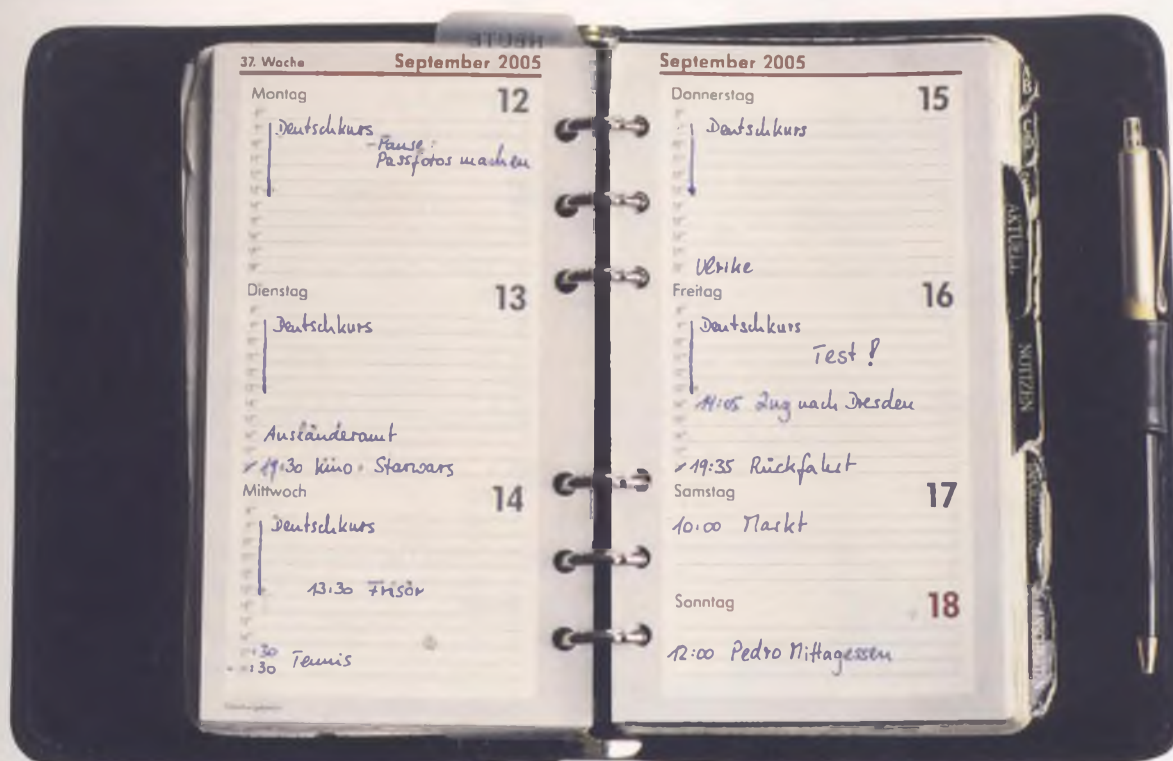 HEUTE
37. Woche September 2005
Montag 12
Deutschkurs
- Pause:
Passfotos machen
Dienstag 13
Deutschkurs
Ausländeramt
19:30 Kino: Starwars
Mittwoch 14
Deutschkurs
13:30 Frisör
:30
:30 Tennis
September 2005
Donnerstag 15
Deutschkurs
Ulrike
Freitag 16
Deutschkurs
Test!
14:05 Zug nach Dresden
19:35 Rückfahrt
Samstag 17
10:00 Markt
Sonntag 18
12:00 Pedro Mittagessen
AKTUELL
NOTIZEN